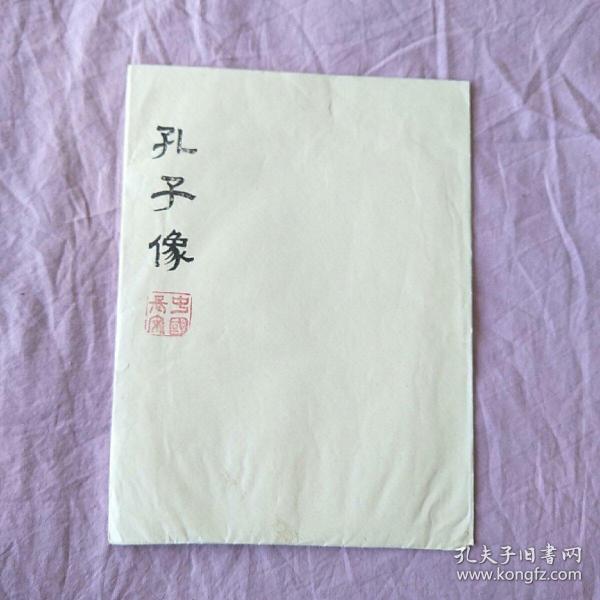 孔子像
中國長安
孔夫子旧書网
www.kongfz.com